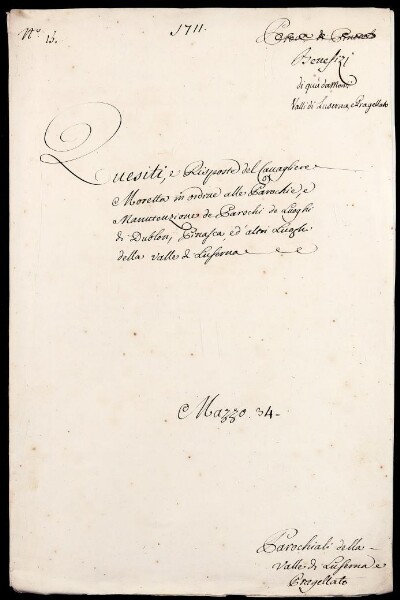 Nº. 15.
1711.
Benefizi
di quà da monti
Valli di Luserna, e Pragellato
Quesiti, e Risposte del Cavagliere
Moretta in ordine alle Parochie, e
Manutenzione de Parochi de Luoghi
di Dublon, Pinasca, ed altri Luoghi
della valle di Luserna
Mazzo. 34
Parochiali della
Valle di Luserna e
Pragellato